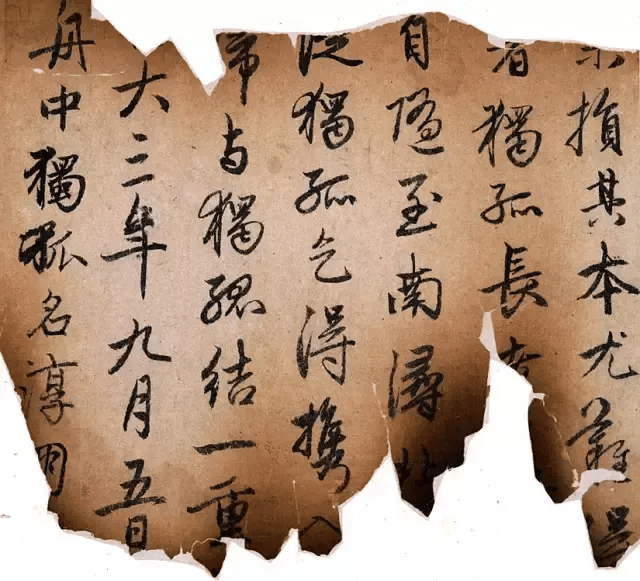 未損其本尤難得
者獨孤長老
自隨至南潯北
從獨孤乞得携入
歸与獨孤結一重
大三年九月五日
舟中獨孤名淳朋